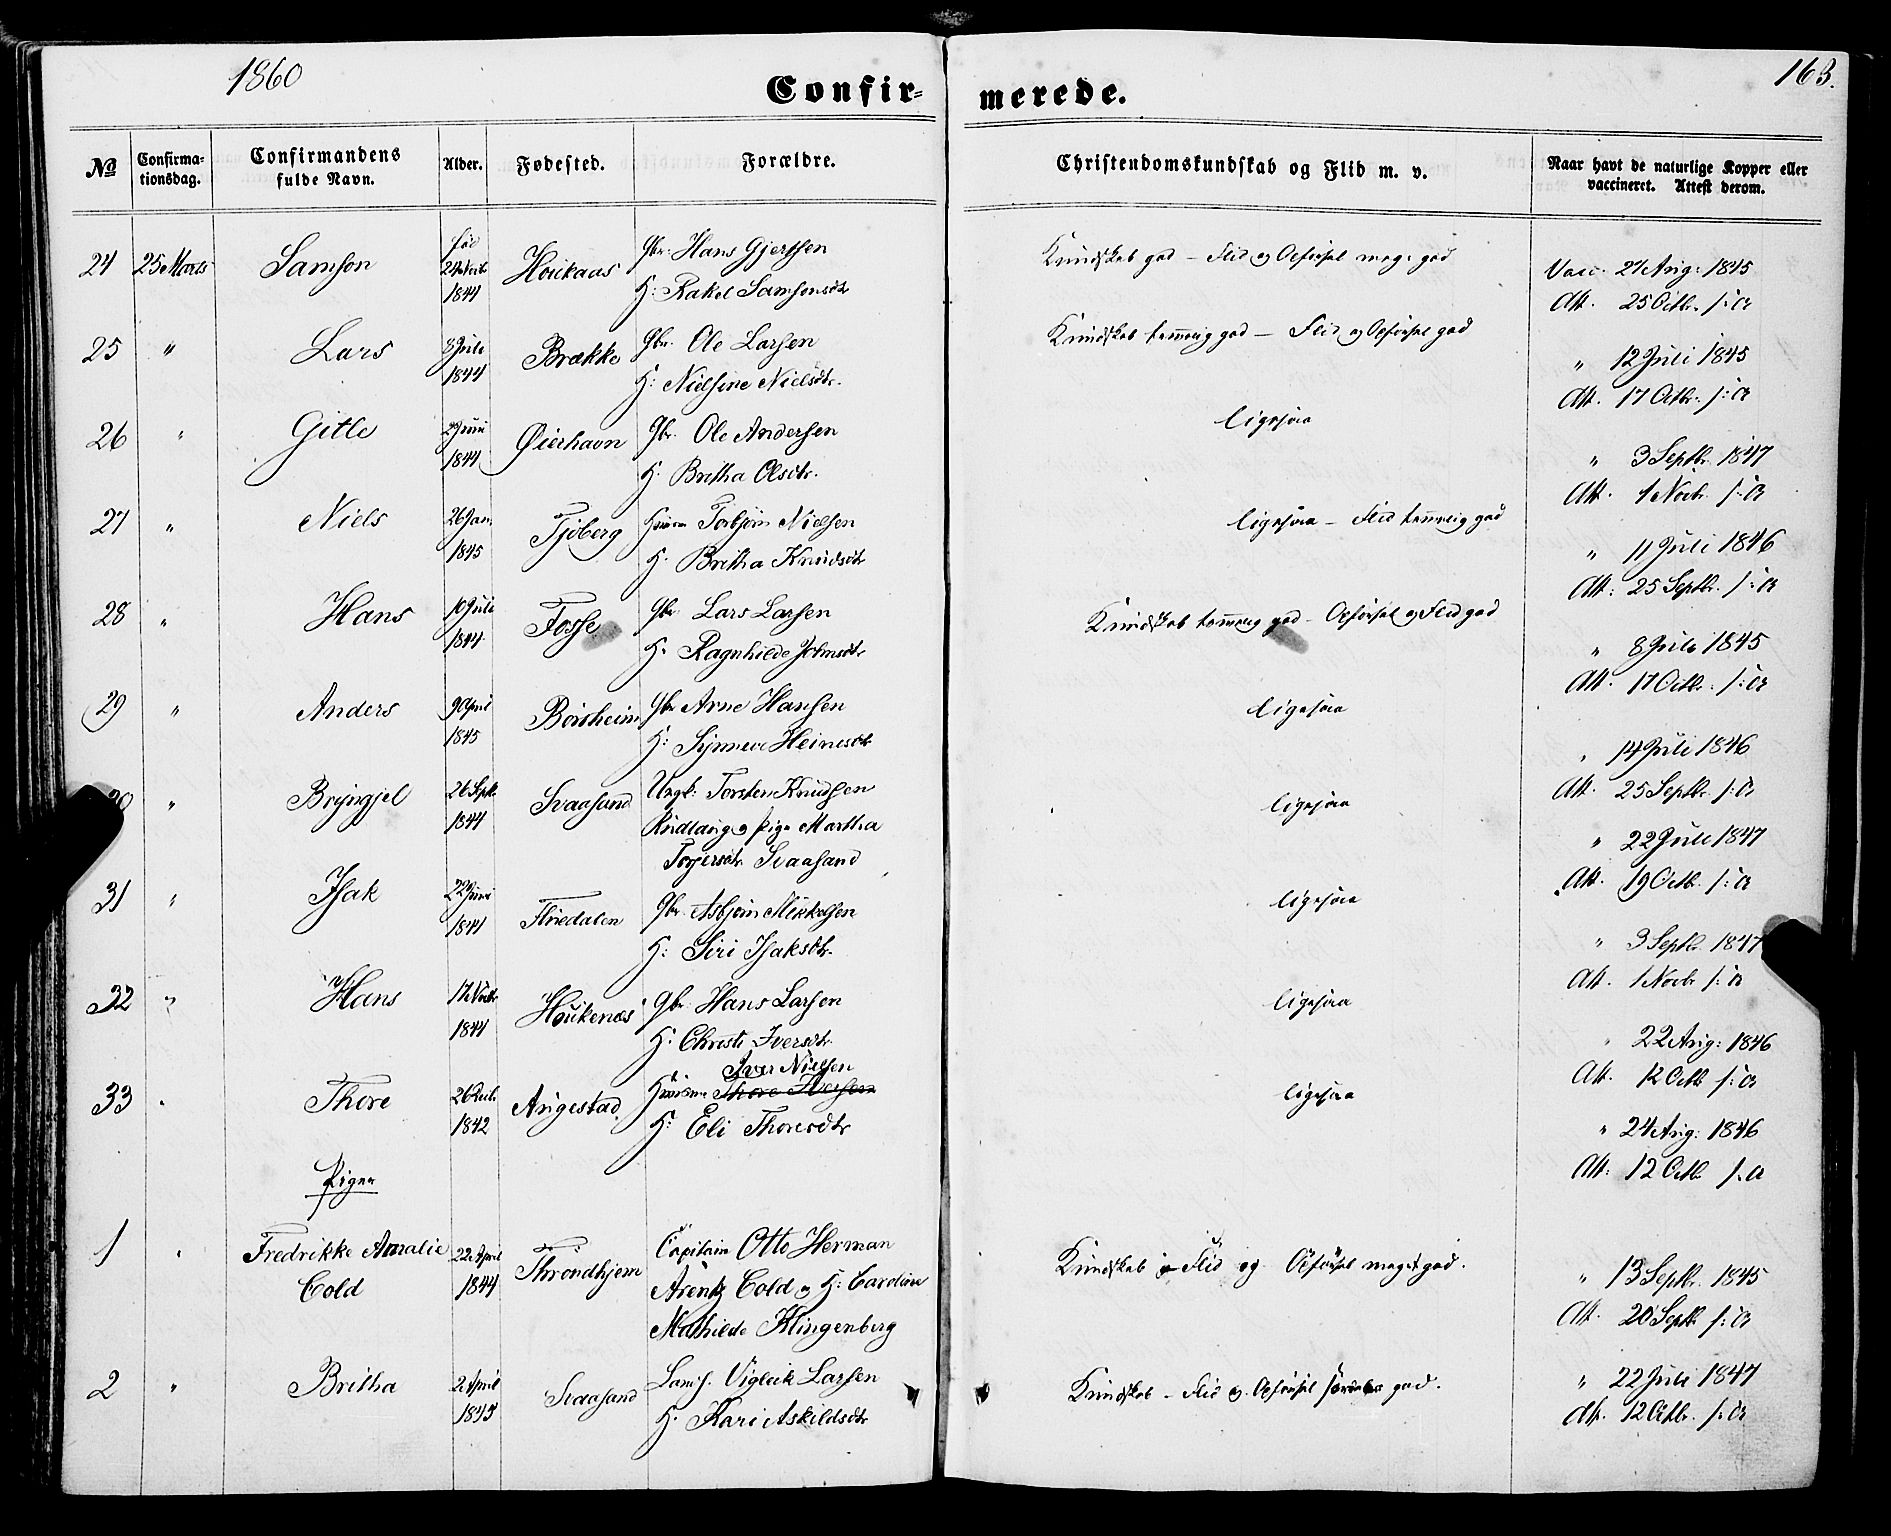 1860
Confir-
merede.
163.
No
Confirma-
tionsdag.
Confirmandens
fulde Navn.
Alder.
Fødested.
Forældre.
Christendomskundskab og Flid m. v.
Naar havt de naturlige Kopper eller
vaccineret. Attest derom.
24 25 Marts Samson 1844 Gbr. Hans Gjertsen
H: Rakel Samsonsdtr
Kundskab god - Flid og Opførsel meget god
Vacc. 27 Aug: 1845
Att. 25 Octbr. s: A
25 " Lars 8 Juli 1844 Brække Gbr. Ole Larsen
H: Nielsine Nielsdtr.
Kundskab temmelig god - Flid og Opførsel god
" 12 Juli 1845
Att. 17 Octbr. s: A
26 " Gitle 1844 Øierhavn Gbr. Ole Andersen
H. Britha Olsdtr.
ligesaa
" 3 Septbr. 1847
Att. 1 Novbr. s: A
27 " Niels 26 Jan. 1845 Tjoberg Huusm Torbjørn Nielsen
H. Britha Knudsdtr
ligesaa - Flid temmelig god
" 11 Juli 1846
Att: 25 Septbr. s: A
28 " Hans 10 Juli 1844 Fosse Gbr. Lars Larsen
H. Ragnhilde Johnsdtr
Kundskab temmelig god - Opførsel og Flid god
" 8 Juli 1845
Att. 17 Octbr. s: A
29 " Anders 9 April 1845 Børsheim Gbr Arne Hansen
H: Synneve Heinesdtr
ligesaa
" 14 Juli 1846
Att. 25 Septbr. s: A
30 " Bryngjel 26 Septb. 1844 Svaasand Ungk: Torsten Knudsen
og Pige Martha
Svaasand
ligesaa
" 22 Juli 1847
Att. 19 Octb. s: A
31 " Isak 22 Juni 1844 Gbr. Asbjørn Mikkelsen
H: Siri Isaksdtr.
ligesaa
" 3 Septbr. 1847
Att. 1 Novbr s: A
32 " Hans 1844 Houkenæs Gbr. Hans Larsen
H: Christi Iversdtr.
ligesaa
" 22 Aug: 1846
Att. 12 Octb s: A
33 " Thore 1842 Augestad Iver Nielsen
Huusm Thore Iversen
H: Eli Thoresdtr
ligesaa
" 24 Aug: 1846
Att: 12 Octb s: A
Piger
1 " Fredrikke Amalie
Cold
22 April 1844 Throndhjem Capitain Otto Herman
Arentz Cold og H: Caroline
Mathilde Klingenberg
Kundskab Flid og Opførsel meget god.
" 13 Septbr. 1845
Att. 20 Septb s: A
2 " Britha 2 April 1845 Svaasand Viglik Larsen
H. Kari Askildsdtr
Kundskab - Flid og Opførsel særdeles god.
" 22 Juli 1847
Att. 12 Octbr. s: A